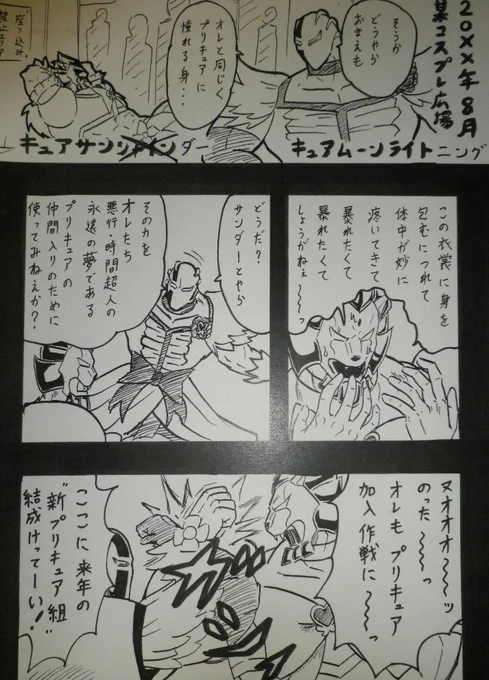 20××年8月
某コスプレ広場
そうか
どうやら
おまえも
オレと同じく
プリキュアに
憧れる身・・
座り込み
禁止エリア
キュアムーンライトニング
キュアサンシャインダー
この衣裳に身を
包むにつれて
体中が妙に
疼いてきて
暴れたくて
暴れたくて
しょうがねぇ〜〜っ
どうだ?
サンダーとやら
その力を
オレたち
悪行・時間超人の
永遠の夢である
プリキュアの
仲間入りのために
使ってみねぇか?
ヌオオオ〜〜ッ
のった〜〜っ
オレもプリキュア
加入作戦に〜〜っ
ここに来年の
"新プリキュア組"
結成けってーい!